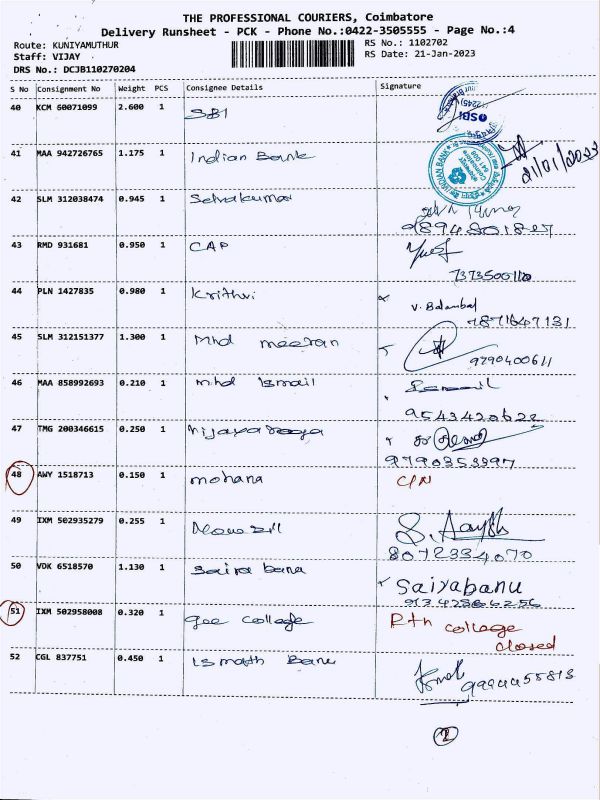 THE PROFESSIONAL COURIERS, Coimbatore
Delivery Runsheet - PCK - Phone No.:0422-3505555 - Page No.:4
Route: KUNIYAMUTHUR
RS No.: 1102702
Staff: VIJAY
RS Date: 21-Jan-2023
DRS No.: DCJB110270204
S No Consignment No Weight PCS Consignee Details Signature
40 KCM 60071099 2.600 1 SBI
SBI
41 MAA 942726765 1.175 1 Indian Bank
INDIAN BANK
21/01/2023
42 SLM 312038474 0.945 1 Selvakumar
9894801827
43 RMD 931681 0.950 1 CAP
7373500110
44 PLN 1427835 0.980 1 Krithvi V. Balambal
7871647131
45 SLM 312151377 1.300 1 Mhd meeran
9790400611
46 MAA 858992693 0.210 1 mhd Ismail
9543420622
47 TMG 200346615 0.250 1
9790353997
48 AWY 1518713 0.150 1 mohana C/N
49 IXM 502935279 0.255 1 S. Aaysh
8072334070
50 VDK 6518570 1.130 1 Saira banu Saiyabanu
51 IXM 502958008 0.320 1 gee college Rtn college
closed
52 CGL 837751 0.450 1 Ismath Banu
2